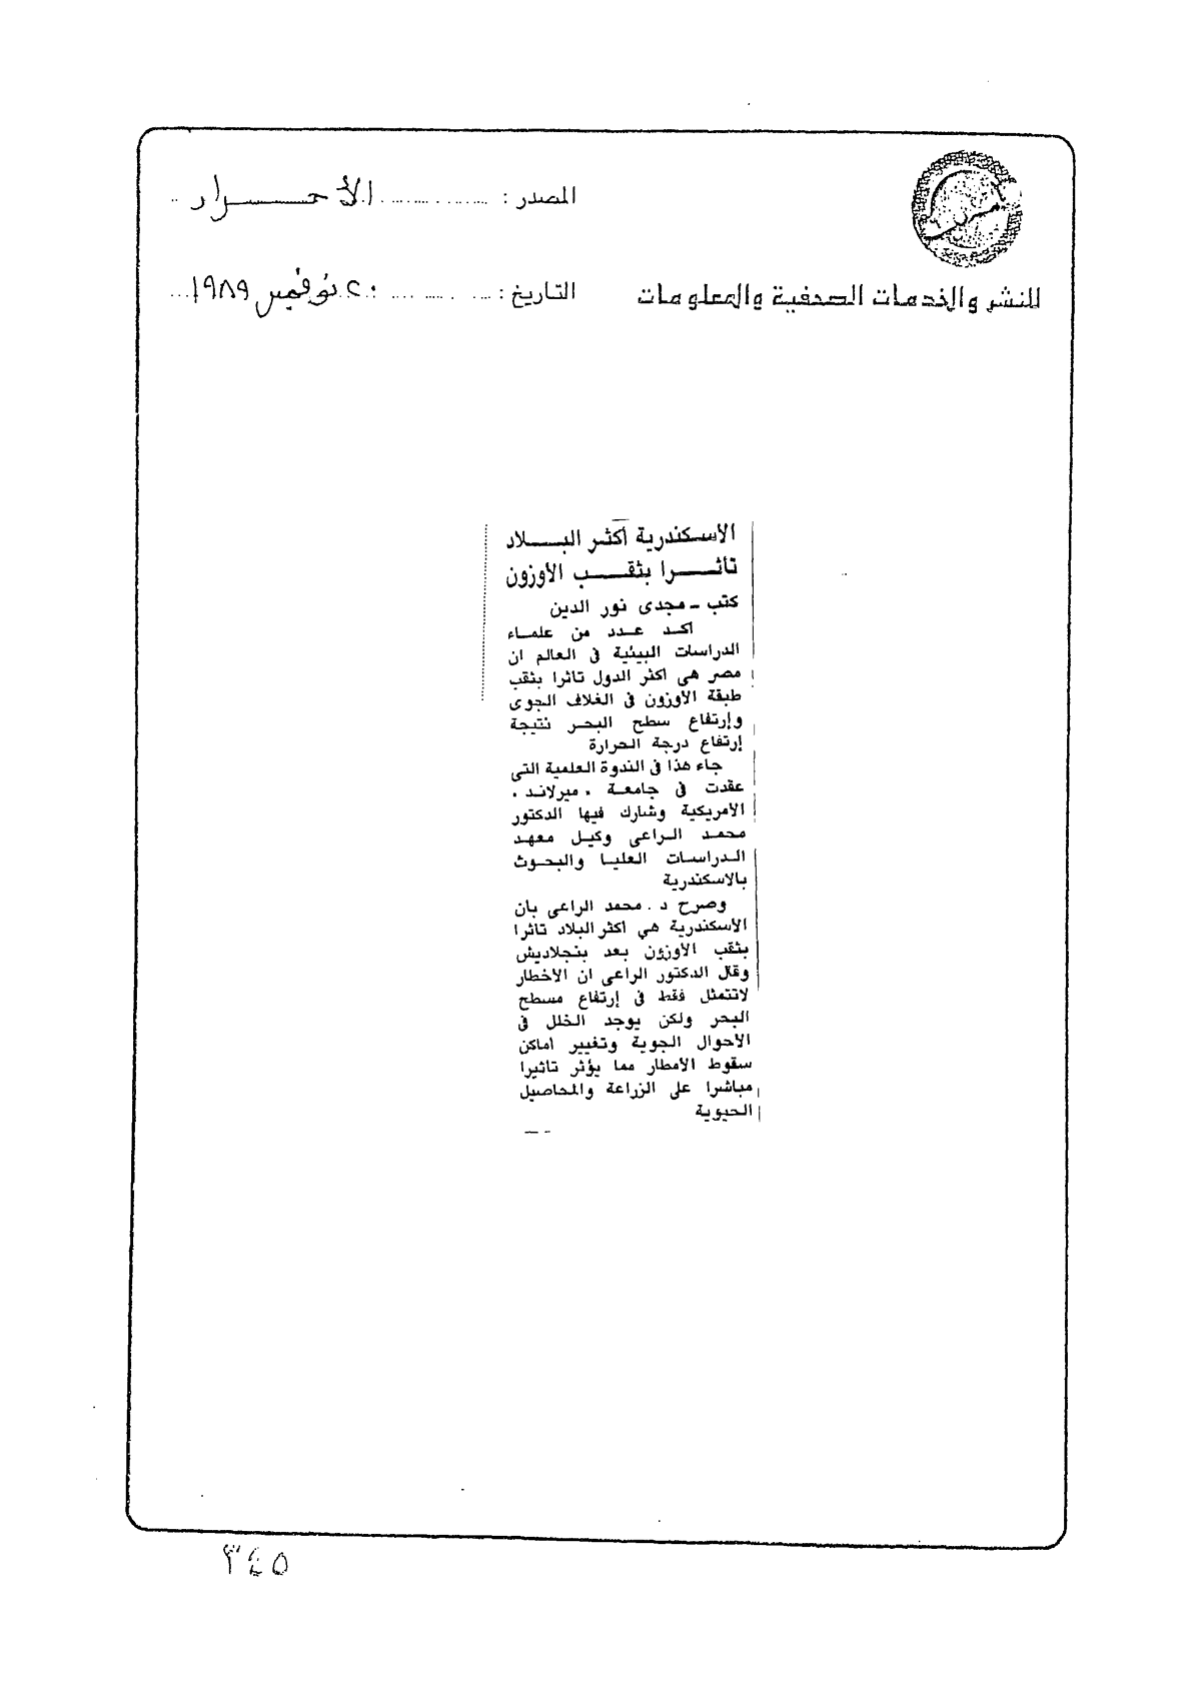 المصدر : الأحـــرار
للنشر والخدمات الصحفية والمعلومات
التاريخ : ٢٠ نوفمبر ١٩٨٩
الاسـكندرية أكثـر البــــلاد
تأثــــرا بثقــــب الأوزون
كتب - مجدى نور الدين
اكـد عـدد من علمـاء
الدراسات البيئية فى العالم ان
مصر هى اكثر الدول تاثرا بثقب
طبقة الأوزون فى الغلاف الجوى
وإرتفاع سطح البحـر نتيجة
إرتفاع درجة الحرارة
جاء هذا فى الندوة العلمية التى
عقدت فى جامعـة ، ميرلانـد ،
الأمريكية وشارك فيها الدكتور
محمـد الـراعى وكيـل معهـد
الـدراسـات العليـا والبحـوث
بالاسكندرية
وصرح د . محمد الراعى بان
الأسكندرية هي اكثر البلاد تاثرا
بثقب الأوزون بعد بنجلاديش
وقال الدكتور الراعى ان الأخطار
لاتتمثل فقط فى إرتفاع مسطح
البحر ولكن يوجد الخلل فى
الأحوال الجوية وتغيير اماكن
سقوط الأمطار مما يؤثر تاثيرا
مباشرا على الزراعة والمحاصيل
الحيوية
٣٤٥